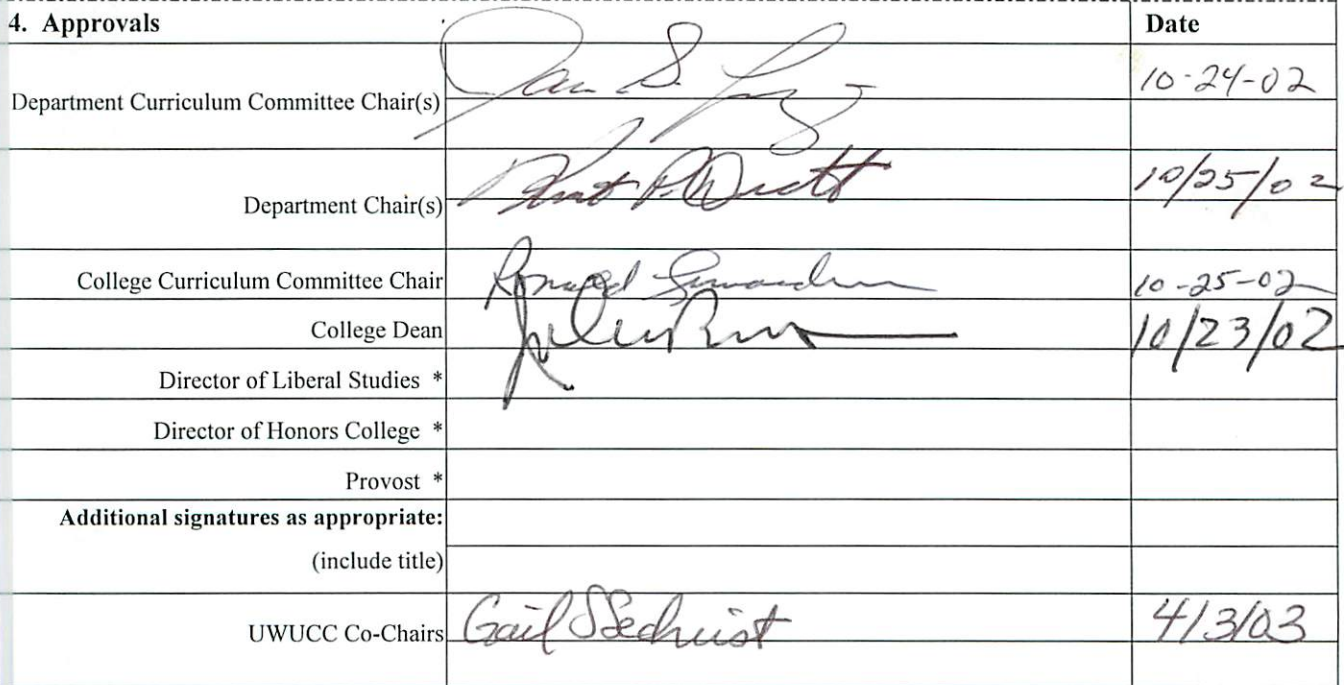 4. Approvals Date
Department Curriculum Committee Chair(s) 10-24-02
Department Chair(s) 10/25/02
College Curriculum Committee Chair Ronald 10-25-02
College Dean 10/23/02
Director of Liberal Studies *
Director of Honors College *
Provost *
Additional signatures as appropriate:
(include title)
UWUCC Co-Chairs Gail S Sechrist 4/3/03